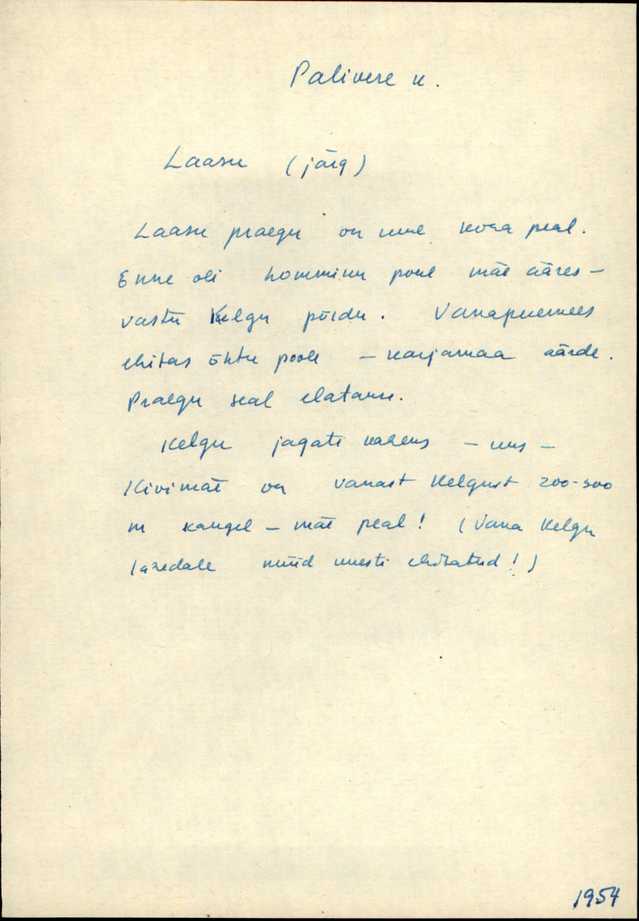 Palivere k.
Laasu (järg)
Laasu praegu on uue koha peal.
Enne oli hommiku poul mäe ääres –
vastu Kelgu põldu. Vanapuemees
ehitas õhtu poole – karjamaa äärde.
Praegu seal elatakse.
Kelgu jagati kaheks – uus –
Kivimäe on vanast Kelgust 200-300
m kaugel – mäe peal! (Vana Kelgu
lasedale nüüd uuesti ehitatud!)
1954